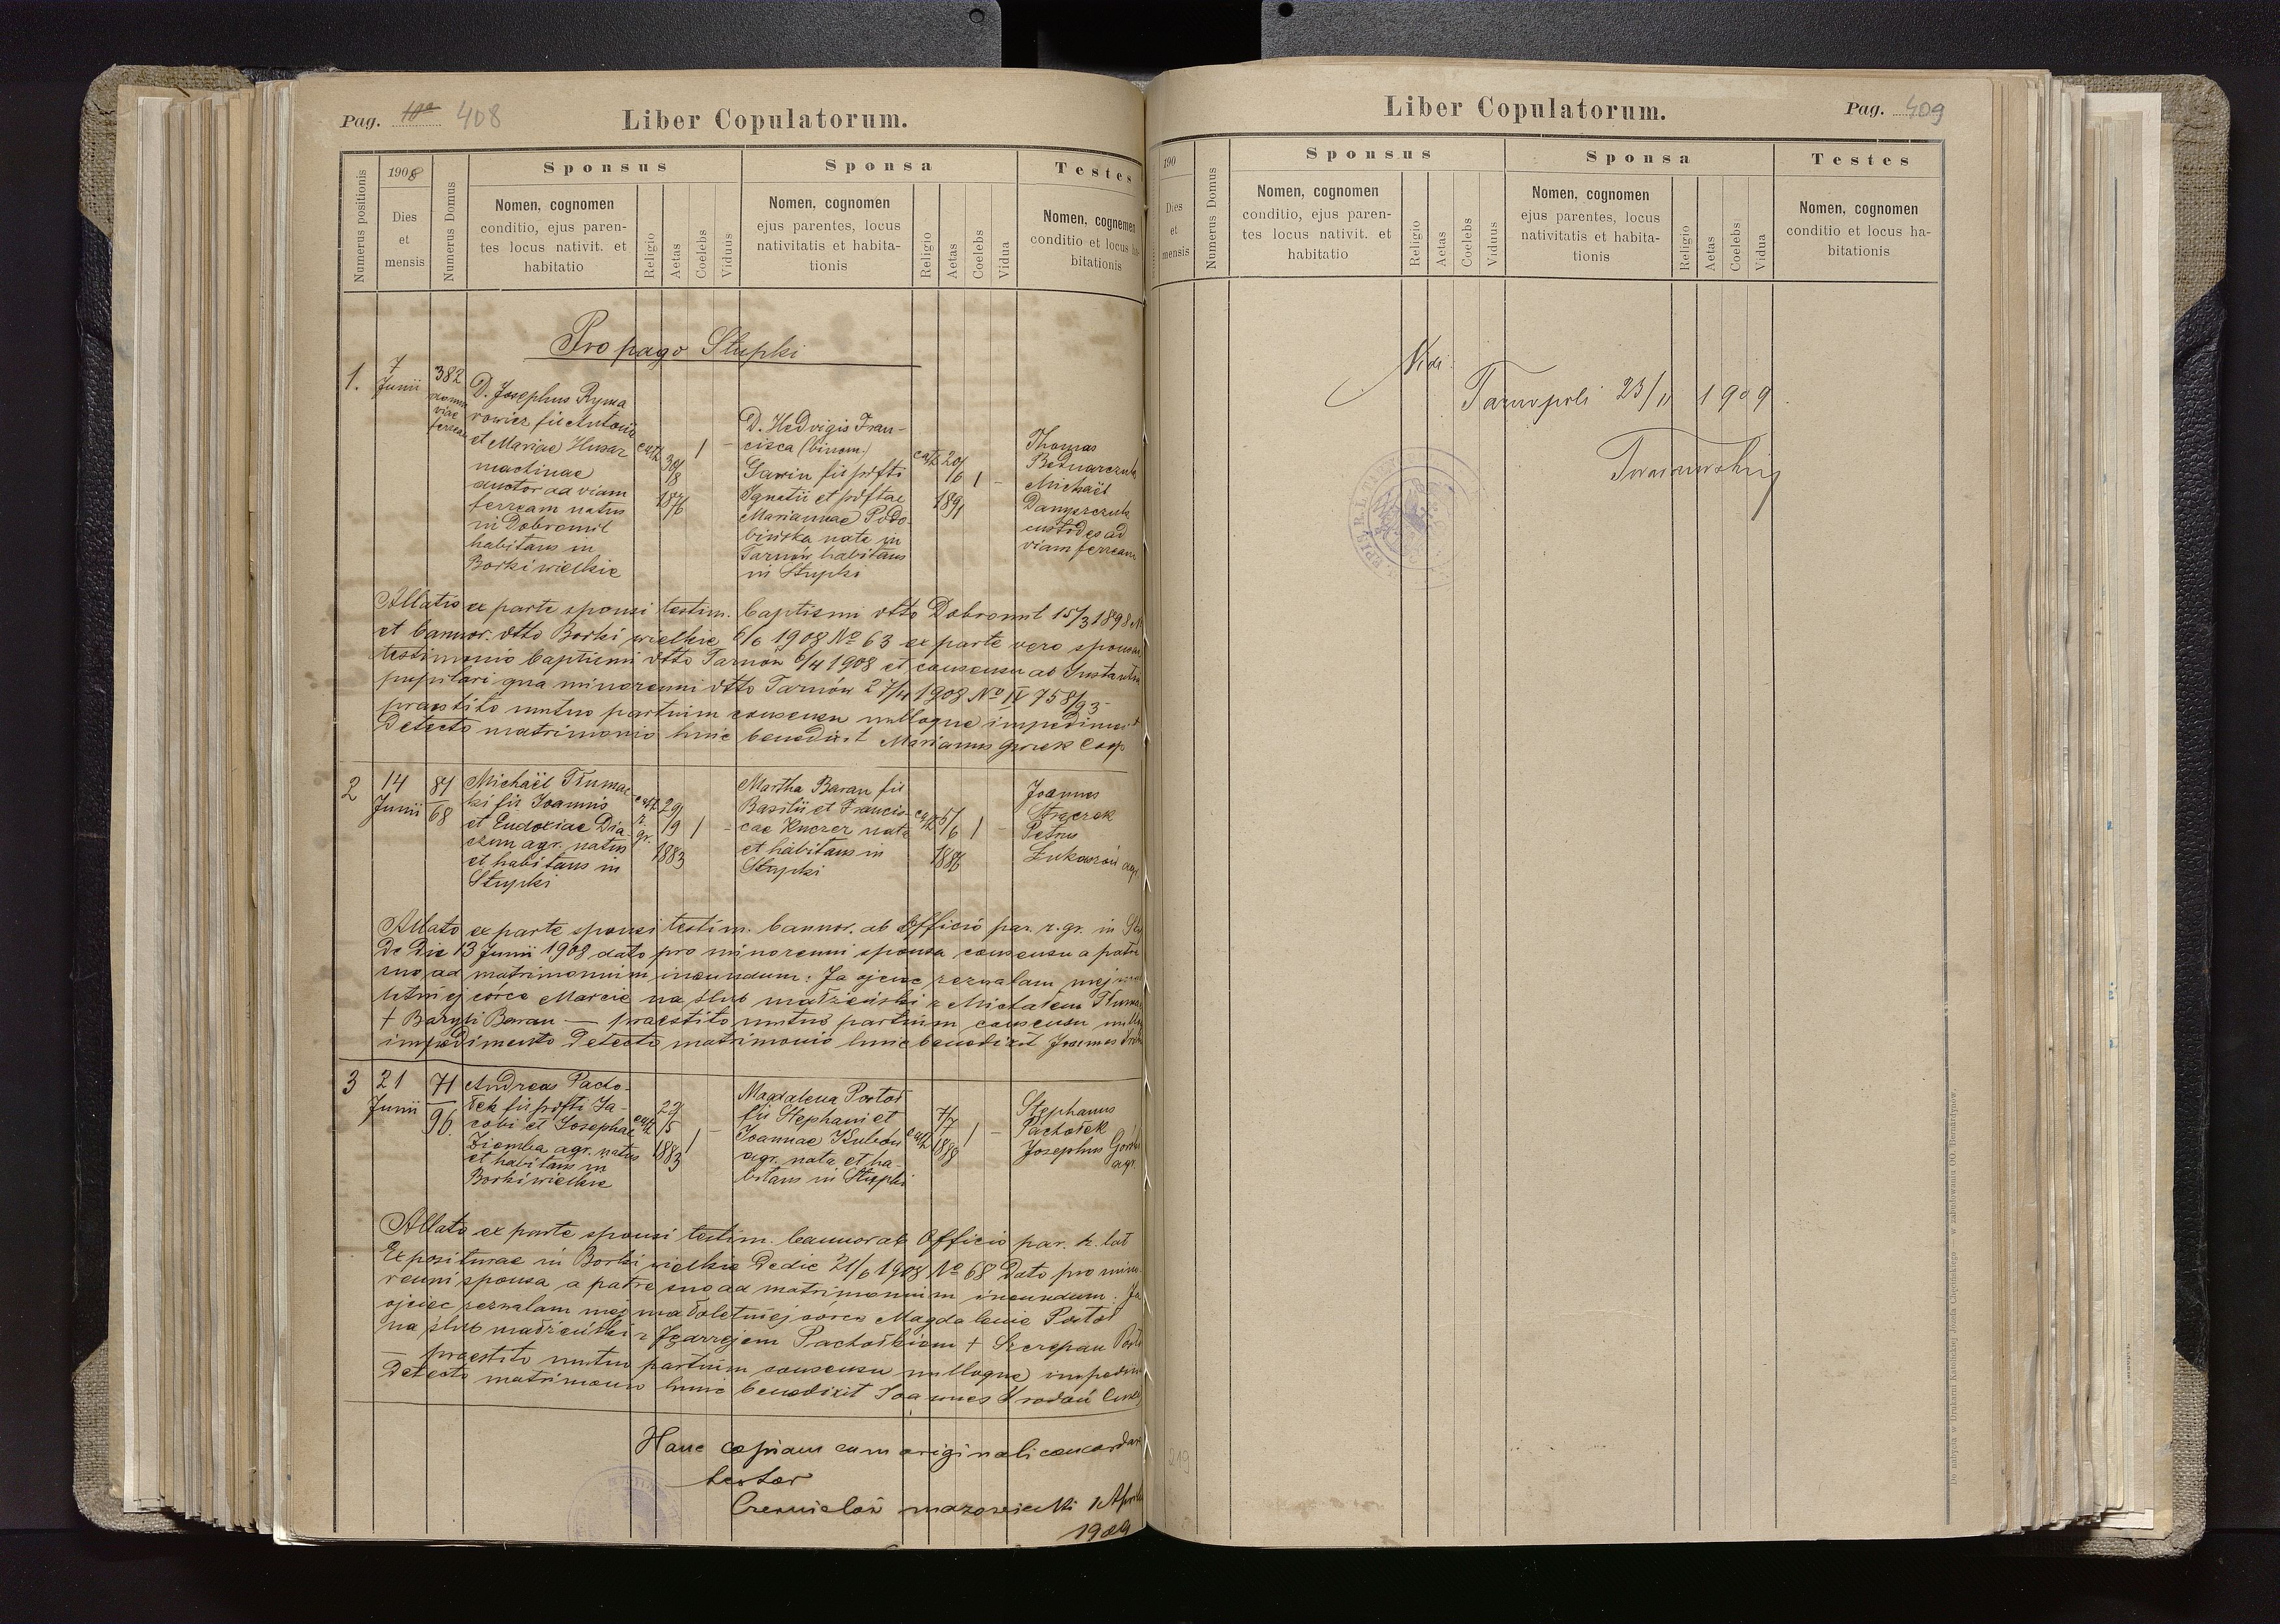 Pag. 100 408
Liber Copulatorum.
Numerus positionis
1908
Dies
et
mensis
Numerus Domus
Sponsus
Nomen, cognomen
conditio, ejus paren-
tes locus nativit. et
habitatio
Religio
Aetas
Coelebs
Viduus
Sponsa
Nomen, cognomen
ejus parentes, locus
nativitatis et habita-
tionis
Religio
Aetas
Coelebs
Vidua
Testes
Nomen, cognomen
conditio et locus ha-
bitationis
Pro pago Stupki
1.
7
Junii
382
domus
viae
ferreae
D. Josephus Ryma
rowicz fil Antonii
et Mariae Husar
machinae
ductor ad viam
ferream natus
in Dobromil
habitans in
Borki wielkie
cath
30/
/8
1876
1
–
D. Hedvigis Fran-
cisca (binom.)
Gawin fil pdfti
Ignatii et pdftae
Mariannae Podo-
bińska nata in
Tarnów habitans
in Stupki
cath
20/
/6
1891
1
–
Thomas
Bednarczuk
Michaël
Danyerczuk
custodes ad
viam ferream
Allato ex parte sponsi testim. baptismi dtto Dobromil 15/3 1898
et bannor. dtto Borki wielkie 6/6 1908 No 63 ex parte vero sponsae
testimonio baptismi dtto Tarnów 6/4 1908 et consensu ab Instantia
pupilari qua minorenni dtto Tarnów 27/4 1908 No IV 758/93
praestito mutuo partium consensu nulloque impedimento
detecto matrimonio huic benedixit Marianus Gorek Coop
2
14
Junii
84
68
Michaël Tłumac
ki fil Joannis
et Eudoxiae Dia
czun agr. natus
et habitans in
Stupki
cath
r.
gr.
29/
/9
1883
1
–
Martha Baran fil
Basilii et Francis-
cae Kuczer nata
et habitans in
Stupki
cath
5/
/6
1886
1
–
Joannes
Strączek
Petrus
Łukaszów agr
Allato ex parte sponsi testim. bannor. ab Officio par. r. gr. in
de die 13 Junii 1908 dato pro minorenni sponsa consensu a patre
suo ad matrimonium ineundum: Ja ojciec zezwalam mej mało
letniej córce Marcie na ślub małżeński z Michałem Tłumac
+ Bazyli Baran — praestito mutuo partium consensu nullo
impedimento detecto matrimonio huic benedixit Joannes
3
21
Junii
71
96.
Andreas Pacho-
łek fil pdfti Ja-
cobi et Josephae
Ziemba agr. natus
et habitans in
Borki wielkie
cath
29/
/5
1883
1
–
Magdalena Portoł
fil Stephani et
Joannae Kubów
agr. nata et ha
bitans in Stupki
cath
7/
/7
1888
1
–
Stephanus
Pachołek
Josephus
agr.
Allato ex parte sponsi testim. bannor ab Officio par. r. lat
Expositurae in Borki wielkie de die 21/6 1908 No 68 dato pro mino
renni sponsa a patre suo ad matrimonium ineundum: Ja
ojciec zezwalam mej małoletniej córce Magdalenie Portoł
na ślub małżeński z Jędrzejem Pachołkiem + Szczepan
— praestito mutuo partium consensu nulloque impedim
detecto matrimonio huic benedixit Joannes
Hanc copiam cum originali concordare
testor
mazowiecki 1 Aprilis
1909
Liber Copulatorum.
Pag. 409
190
Dies
et
mensis
Numerus Domus
Sponsus
Nomen, cognomen
conditio, ejus paren-
tes locus nativit. et
habitatio
Religio
Aetas
Coelebs
Viduus
Sponsa
Nomen, cognomen
ejus parentes, locus
nativitatis et habita-
tionis
Religio
Aetas
Coelebs
Vidua
Testes
Nomen, cognomen
conditio et locus ha-
bitationis
Vidi
Tarnopoli 23/11 1909
219
Do nabycia w Drukarni Katolickiej Józefa Chęcińskiego w zabudowaniu OO. Bernardynów.